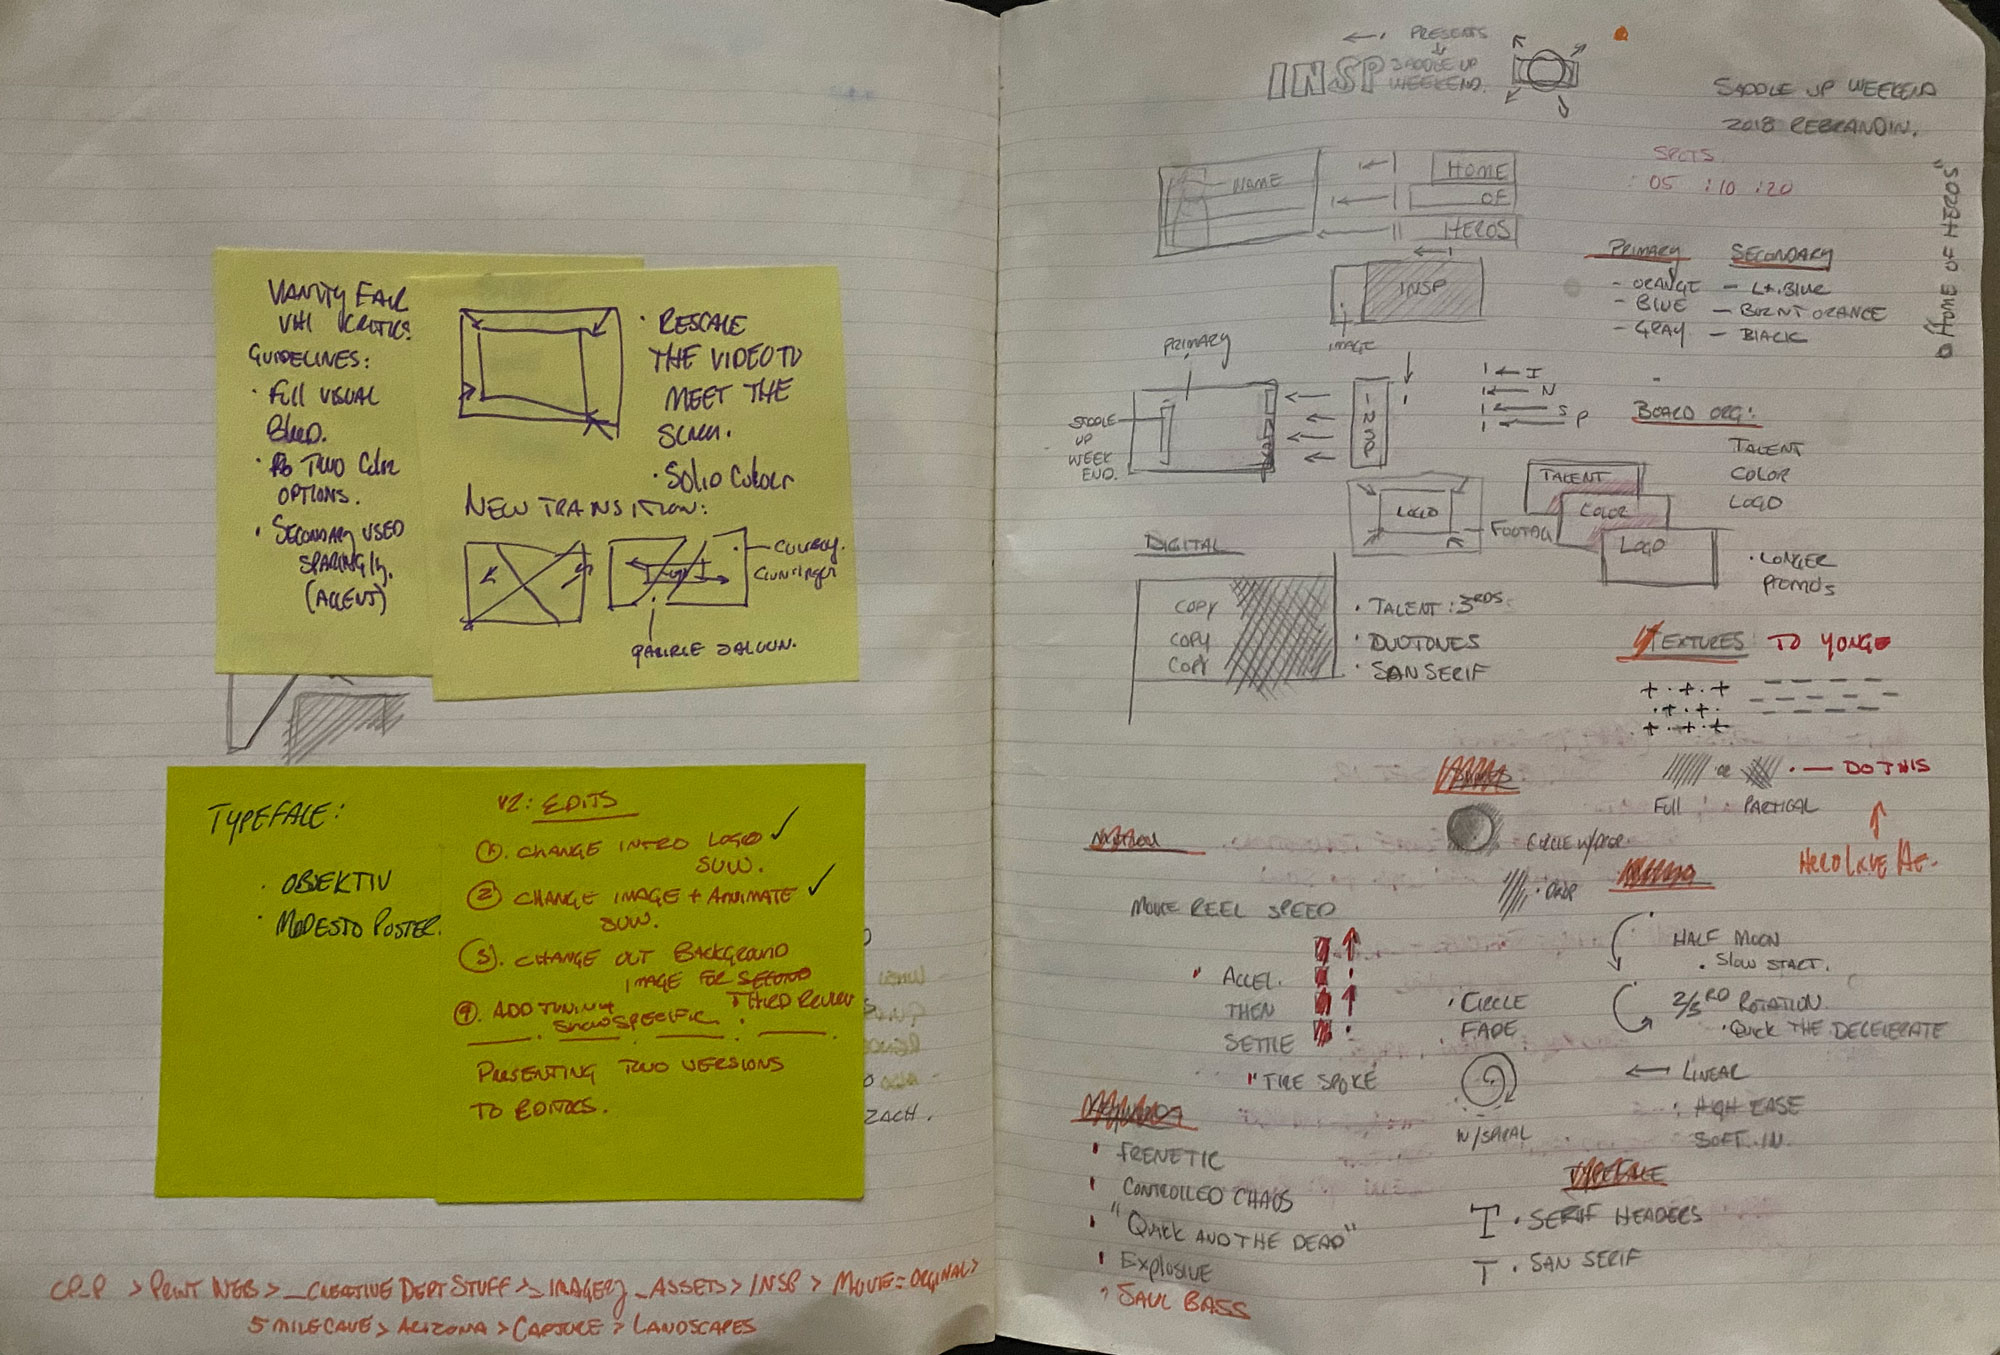 VANITY FAIR
VH1 CRITICS.
GUIDELINES:
· FULL VISUAL
BLEED.
· TWO COLOR
OPTIONS.
· SECONDARY USED
SPARINGLY.
(ACCENT)
· RESCALE
THE VIDEO TO
MEET THE
SCREEN.
· SOLID COLOUR
NEW TRANSITION:
COWBOY.
GUNSLINGER
SALOON.
TYPEFACE:
· OBJEKTIV
· MODESTO POSTER.
V2: EDITS
1. CHANGE INTRO LOGO
SUW.
2. CHANGE IMAGE + ANIMATE
SUW.
3. CHANGE OUT BACKGROUND
IMAGE FOR SECOND
+ THIRD REVIEW
4. ADD TUNING
SHOW SPECIFIC
PRESENTING TWO VERSIONS
TO EDITORS.
ZACH.
CP_P > PRINT WEB > _CREATIVE DEPT STUFF > _IMAGERY_ASSETS > INSP > MOVIE=ORGINAL >
5 MILE CAVE > ARIZONA > CAPTURE > LANDSCAPES
PRESENTS
INSP SADDLE UP
WEEKEND.
SADDLE UP WEEKEND
2018 REBRANDIN.
SPOTS
:05 :10 :20
"HOME OF HEROS"
NAME
HOME
OF
HEROS
INSP
IMAGE
PRIMARY SECONDARY
- ORANGE - LT. BLUE
- BLUE - BURNT ORANGE
- GRAY - BLACK
PRIMARY
SADDLE
UP
WEEK
END.
INSP
I
N
S
P
BOARD ORG:
TALENT
COLOR
LOGO
TALENT
COLOR
LOGO
LOGO
FOOTAG
· LONGER
PROMO'S
DIGITAL
COPY
COPY
COPY
· TALENT: 3RDS
· DUOTONES
· SAN SERIF
TEXTURES: TO YONGE
OR · — DO THIS
FULL PARTICAL
HERO LAVE AE.
CIRCLE W/DROP
· DROP
MOVIE REEL SPEED
" ACCEL.
THEN
SETTLE
" TIRE SPOKE
· CIRCLE
FADE
W/SPIRAL
HALF MOON
· SLOW START.
2/3RD ROTATION
· QUICK THE DECELERATE
← LINEAR
: HIGH EASE
SOFT IN.
FRENETIC
CONTROLLED CHAOS
"QUICK AND THE DEAD"
EXPLOSIVE
SAUL BASS
TYPEFACE
T · SERIF HEADERS
T · SAN SERIF